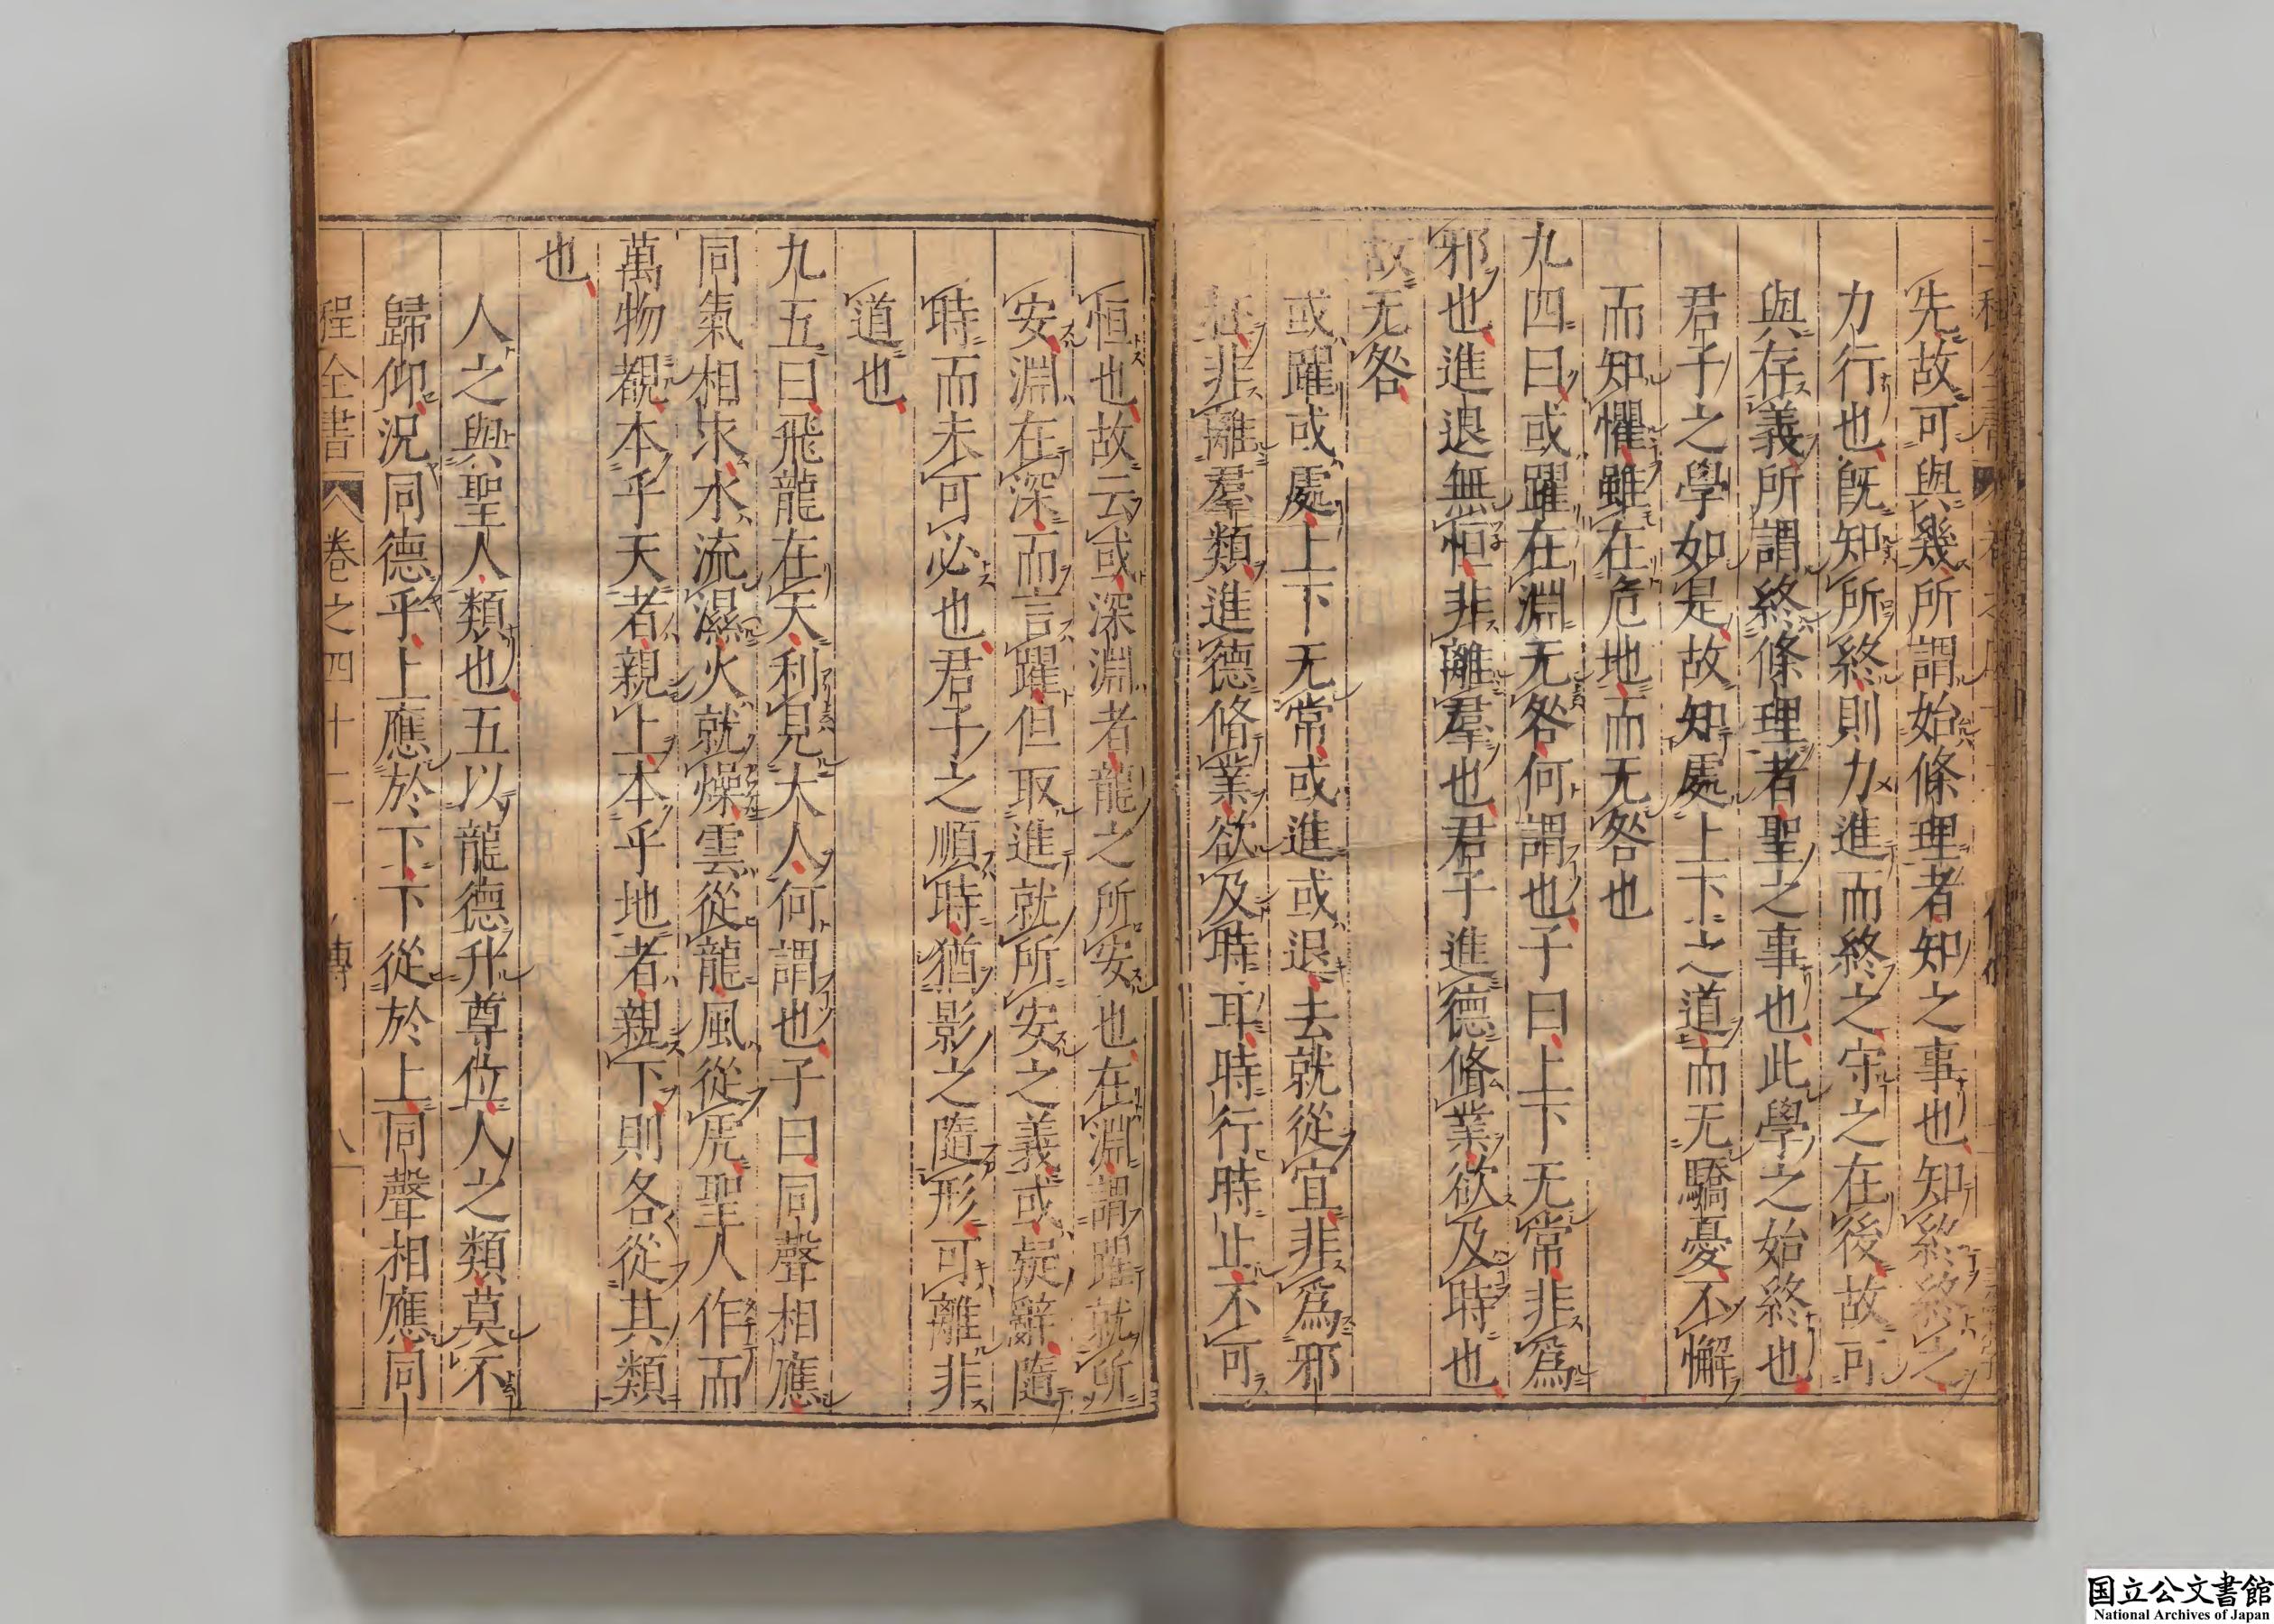 先故可與幾所謂始條理者知之事也知終終之
力行也旣知所終則力進而終之守之在後故可
與存義所謂終條理者聖之事也此學之始終也
君子之學如是故知處上下之道而无驕憂不懈
而知懼雖在危地而无咎也
九四曰或躍在淵无咎何謂也子曰上下无常非爲
邪也進退無恒非離羣也君子進德脩業欲及時也
故无咎
或躍或處上下无常或進或退去就從宜非爲邪
枉非離羣類進德脩業欲及時耳時行時止不可
恒也故云或深淵者龍之所安也在淵謂躍就所
安淵在深而言躍但取進就所安之義或疑辭隨
時而未可必也君子之順時猶影之隨形可離非
道也
九五曰飛龍在天利見大人何謂也子曰同聲相應
同氣相求水流濕火就燥雲從龍風從虎聖人作而
萬物覩本乎天者親上本乎地者親下則各從其類
也
人之與聖人類也五以龍德升尊位人之類莫不
歸仰況同德乎上應於下下從於上同聲相應同
程全書
卷之四十二
傳
八
国立公文書館
National Archives of Japan